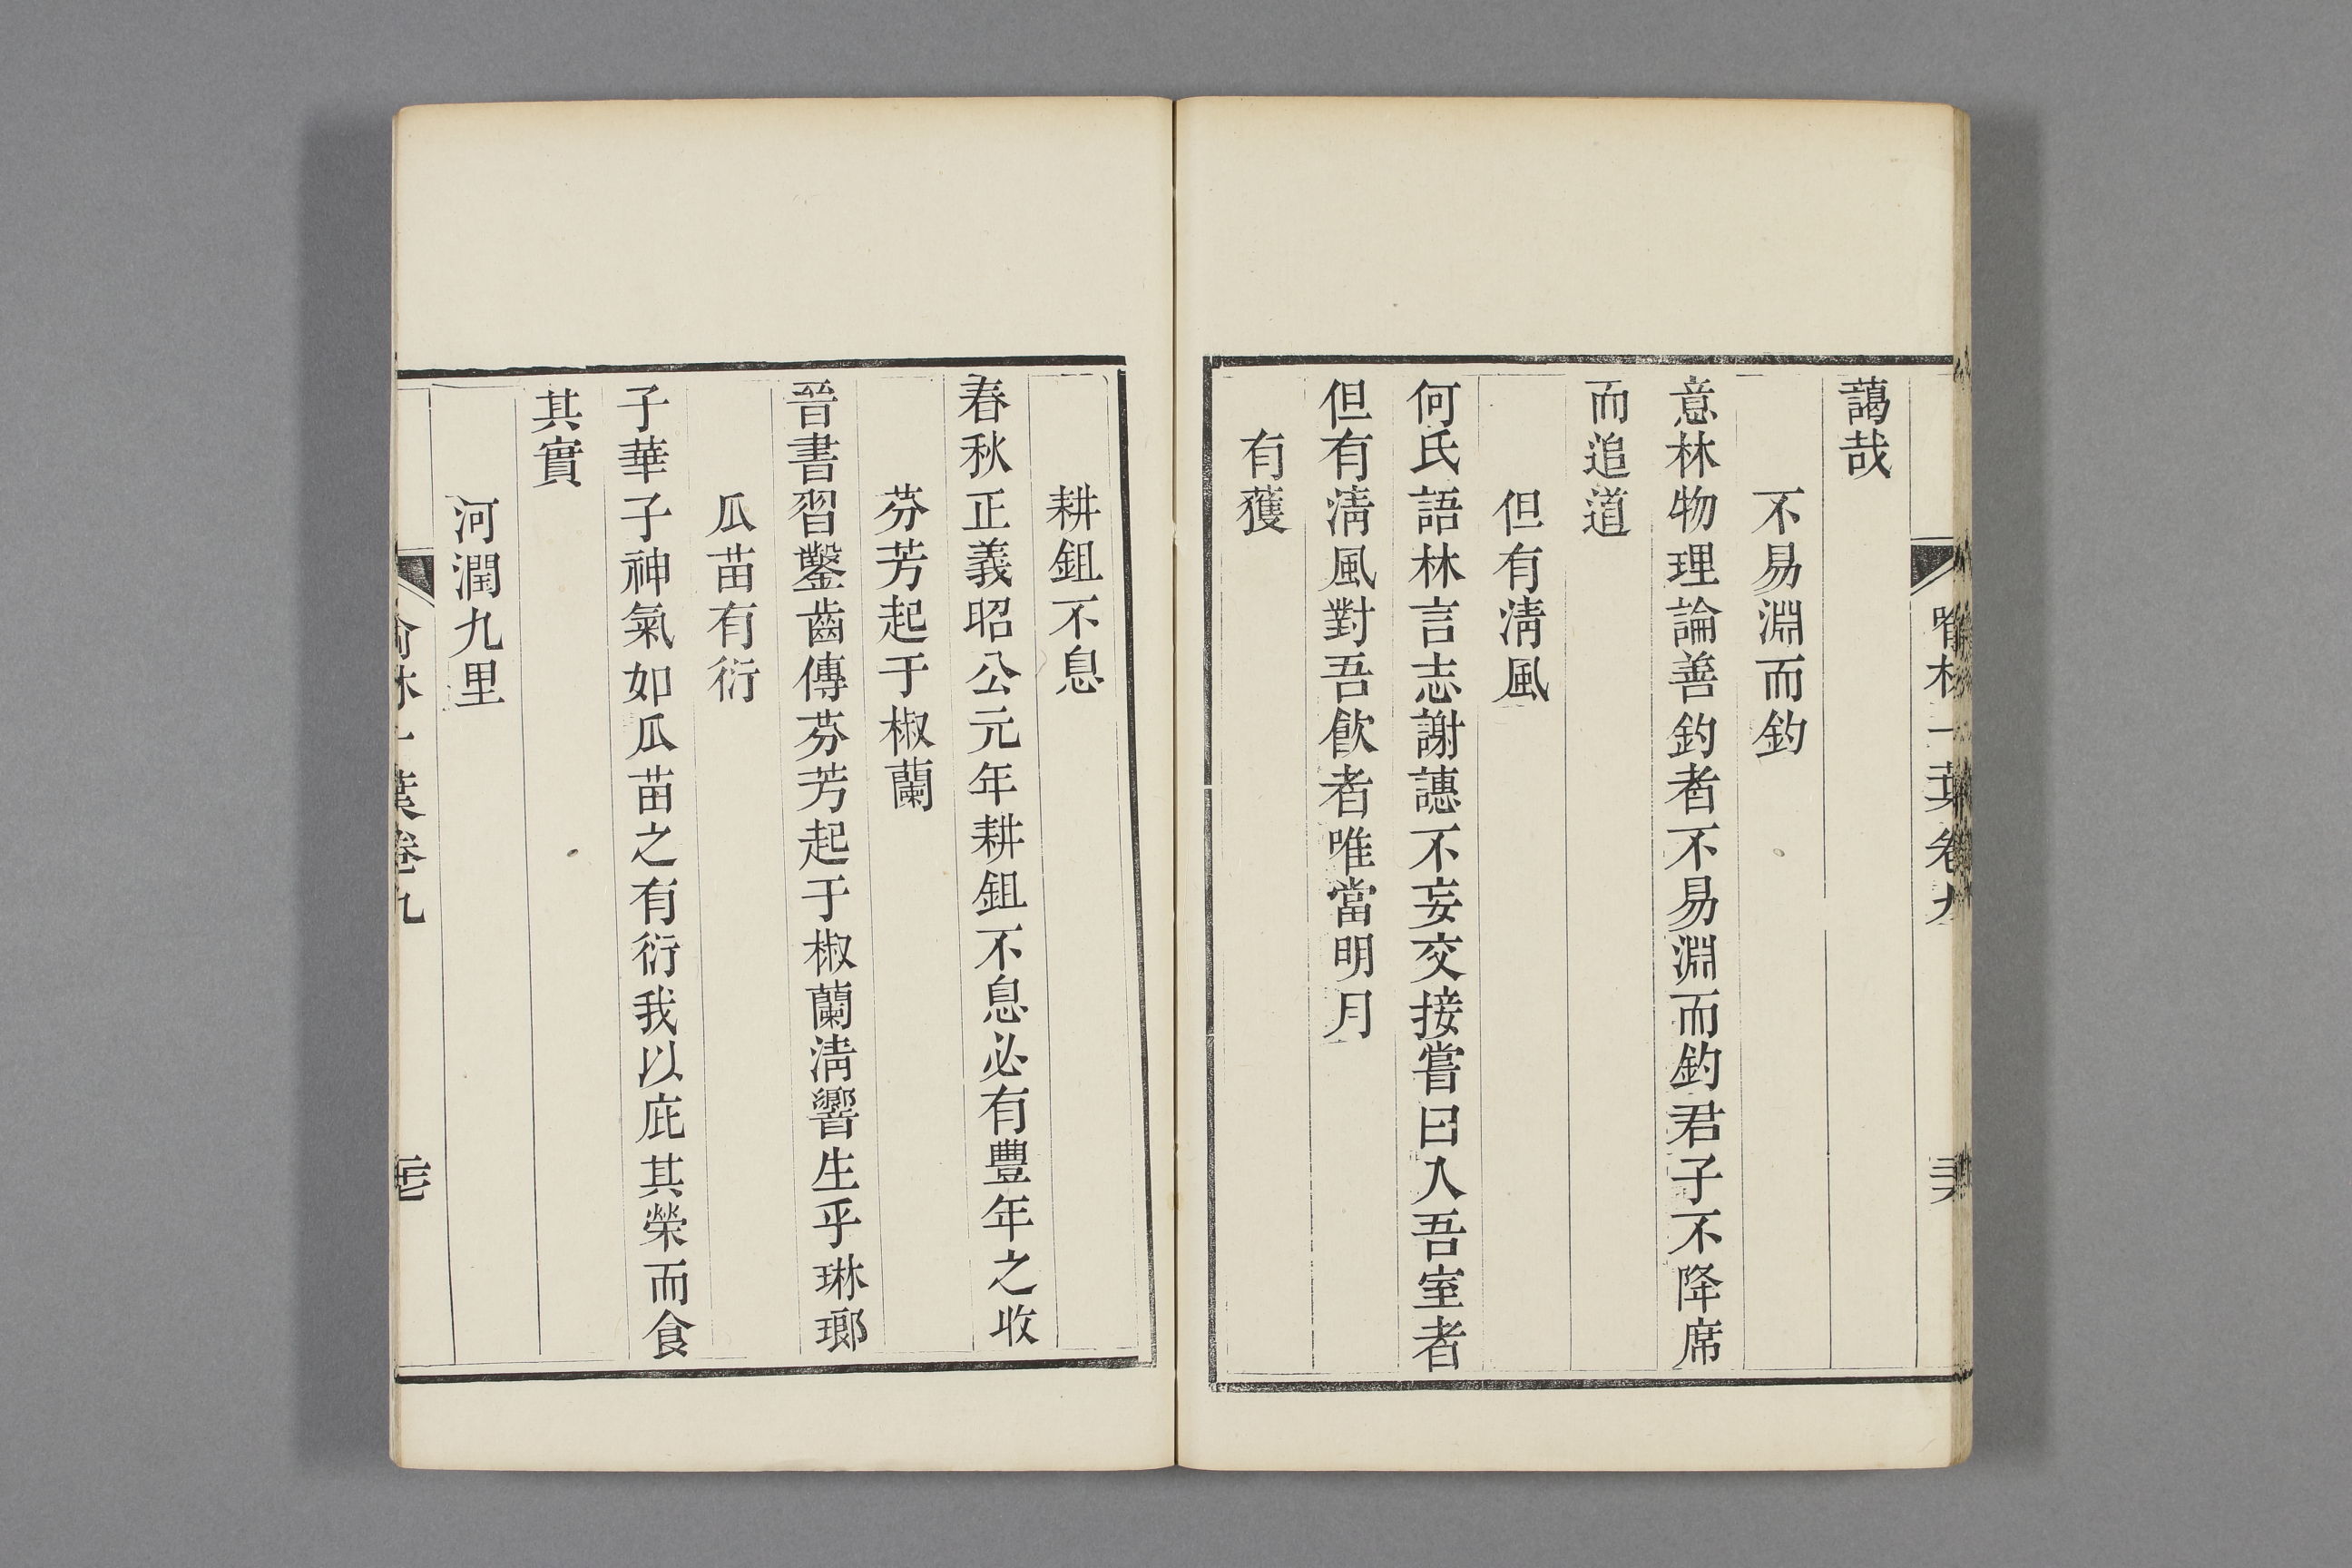 藹哉
不易淵而釣
意林物理論善釣者不易淵而釣君子不降席
而追道
但有淸風
何氏語林言志謝譓不妄交接嘗曰入吾室者
但有淸風對吾飮者唯當明月
有獲
耕鉏不息
春秋正義昭公元年耕鉏不息必有豐年之收
芬芳起于椒蘭
晉書習鑿齒傳芬芳起于椒蘭淸響生乎琳瑯
瓜苗有衍
子華子神氣如瓜苗之有衍我以庇其榮而食
其實
河潤九里
喻林一葉卷九